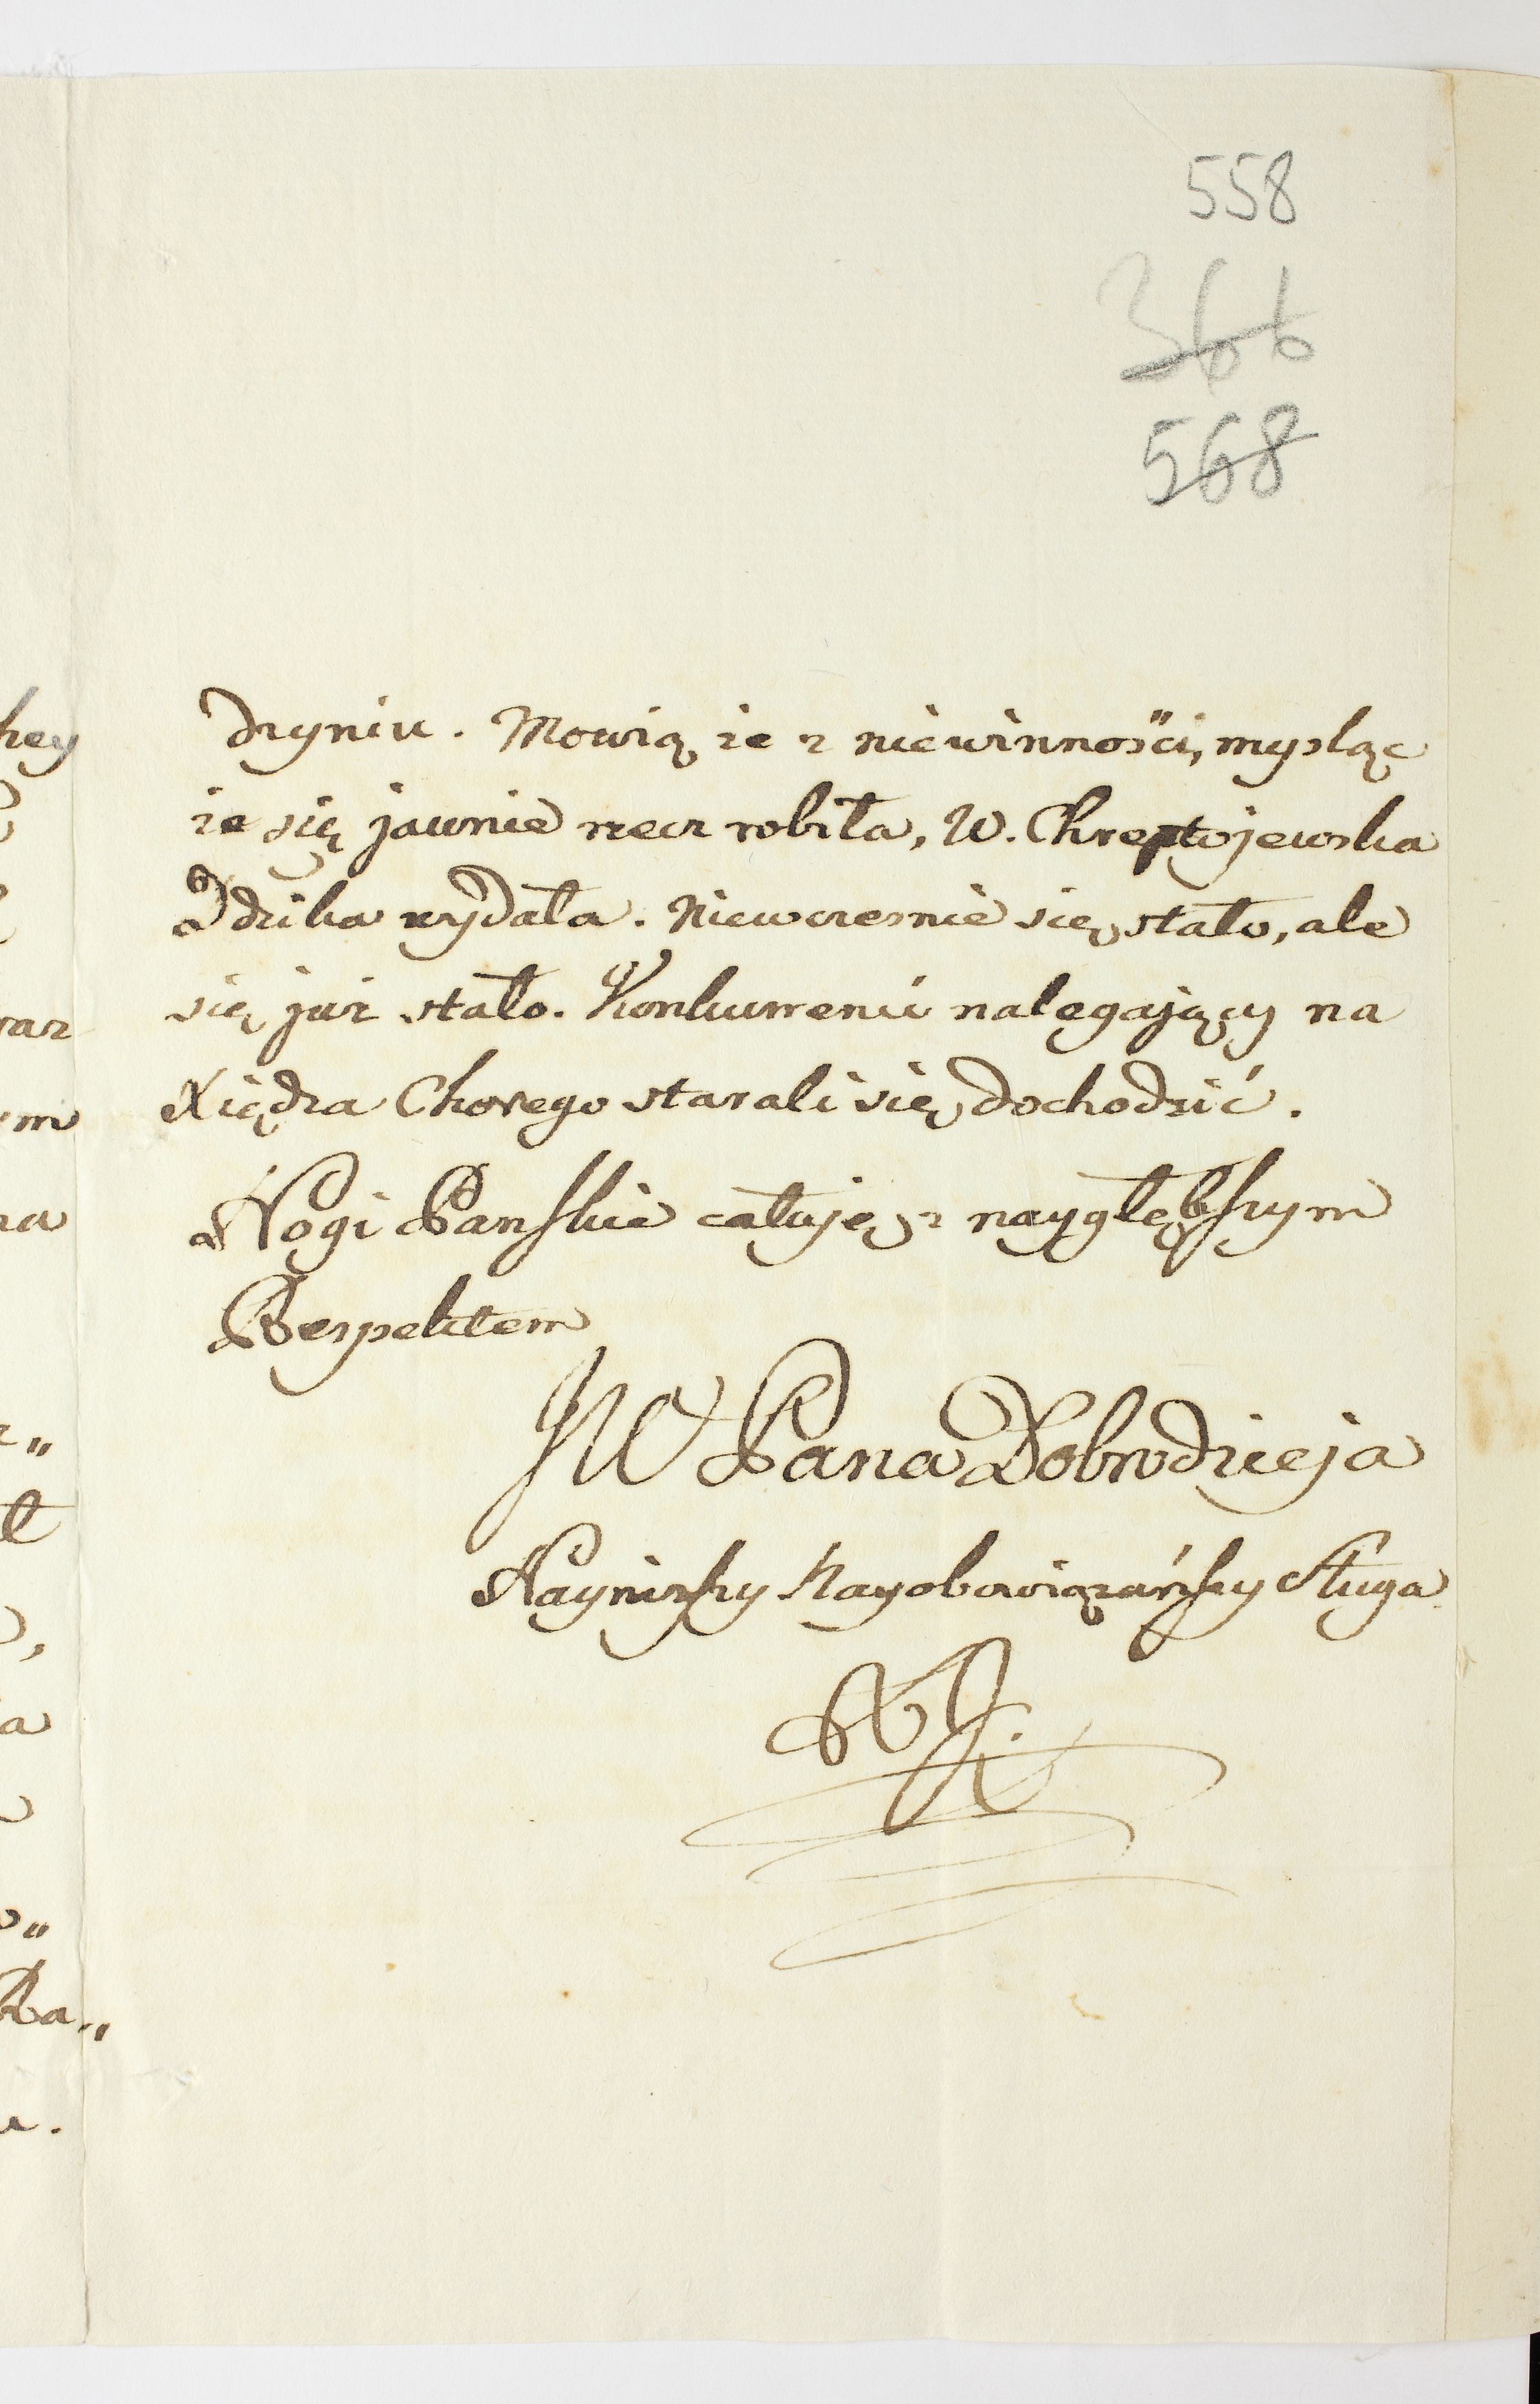 558
366
568
dzyniu. Mowią że z niewinności, mysląc
że się jawnie rzecz robiła, W. Chreptojewska
Jdzika wydała. Niewcześnie się stało, ale
się już stało. Konkurrenci nalegający na
Xiędza Chorego starali się dochodzić.
Nogi Panskie całuję z naygłębszym
Respektem
JW Pana Dobrodzieja
Nayniższy Nayobowiązańszy Sługa